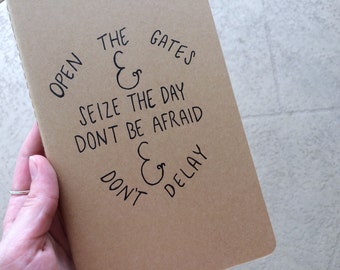 OPEN THE GATES
&
SEIZE THE DAY
DONT BE AFRAID
&
DON'T DELAY